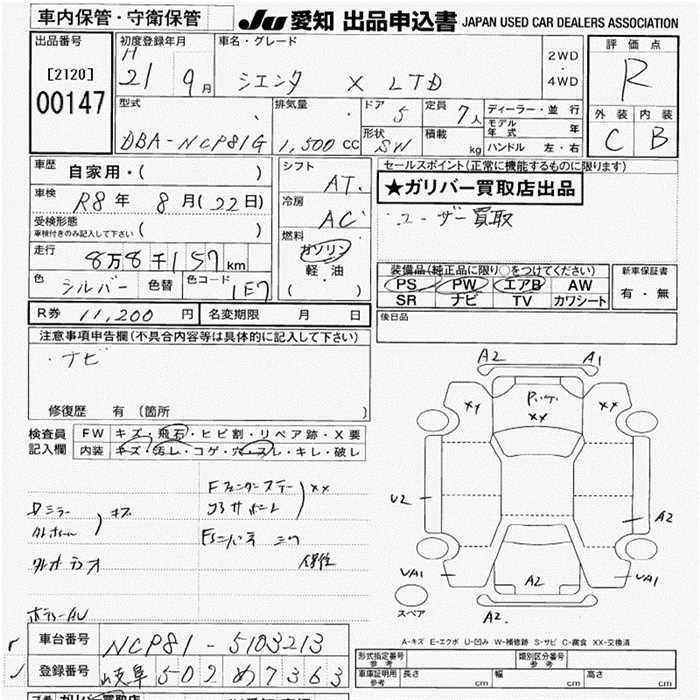 車内保管・守衛保管
JU 愛知 出品申込書 JAPAN USED CAR DEALERS ASSOCIATION
出品番号 初度登録年月 車名・グレード 評価点
[2120] H 21年 9月 シエンタ X LTD 2WD・4WD R
00147
型式 排気量 ドア 定員 ディーラー・並行 外装 内装
DBA-NCP81G 1,500cc 5 7人 モデル年式 年 C B
形状 SW 積載 kg ハンドル 左・右
車歴 自家用・( ) シフト AT セールスポイント(正常に機能するものに限ります)
車検 R8年 8月(22日) 冷房 AC ★ガリバー買取店出品
受検形態 車検付きのみ記入して下さい ( ) ・ユーザー買取
走行 8万8千157km 燃料 ガソリン 軽油 ( ・ )
装備品(純正品に限り○をつけてください) 新車保証書
色 シルバー 色替 色コード 1E7 PS PW エアB AW 有・無
SR ナビ TV カワシート
R券 11,200円 名変期限 月 日 後日品
注意事項申告欄(不具合内容等は具体的に記入して下さい)
・ナビ
修復歴 有 (箇所 )
検査員記入欄 FW キズ・飛石・ヒビ割・リペア跡・X要
内装 キズ・汚レ・コゲ・穴・スレ・キレ・破レ
A2 A1
XX
XX
XX
U2
A2
A2
A2
スペア
A-キズ E-エクボ U-凹み W-補修跡 S-サビ C-腐食 XX-交換済
車台番号 NCP81-5103213
登録番号 岐阜 502 め 7363
形式指定番号 参考 類別区分番号 参考
車庫証明用 参考 長さ cm 幅 cm 高さ cm